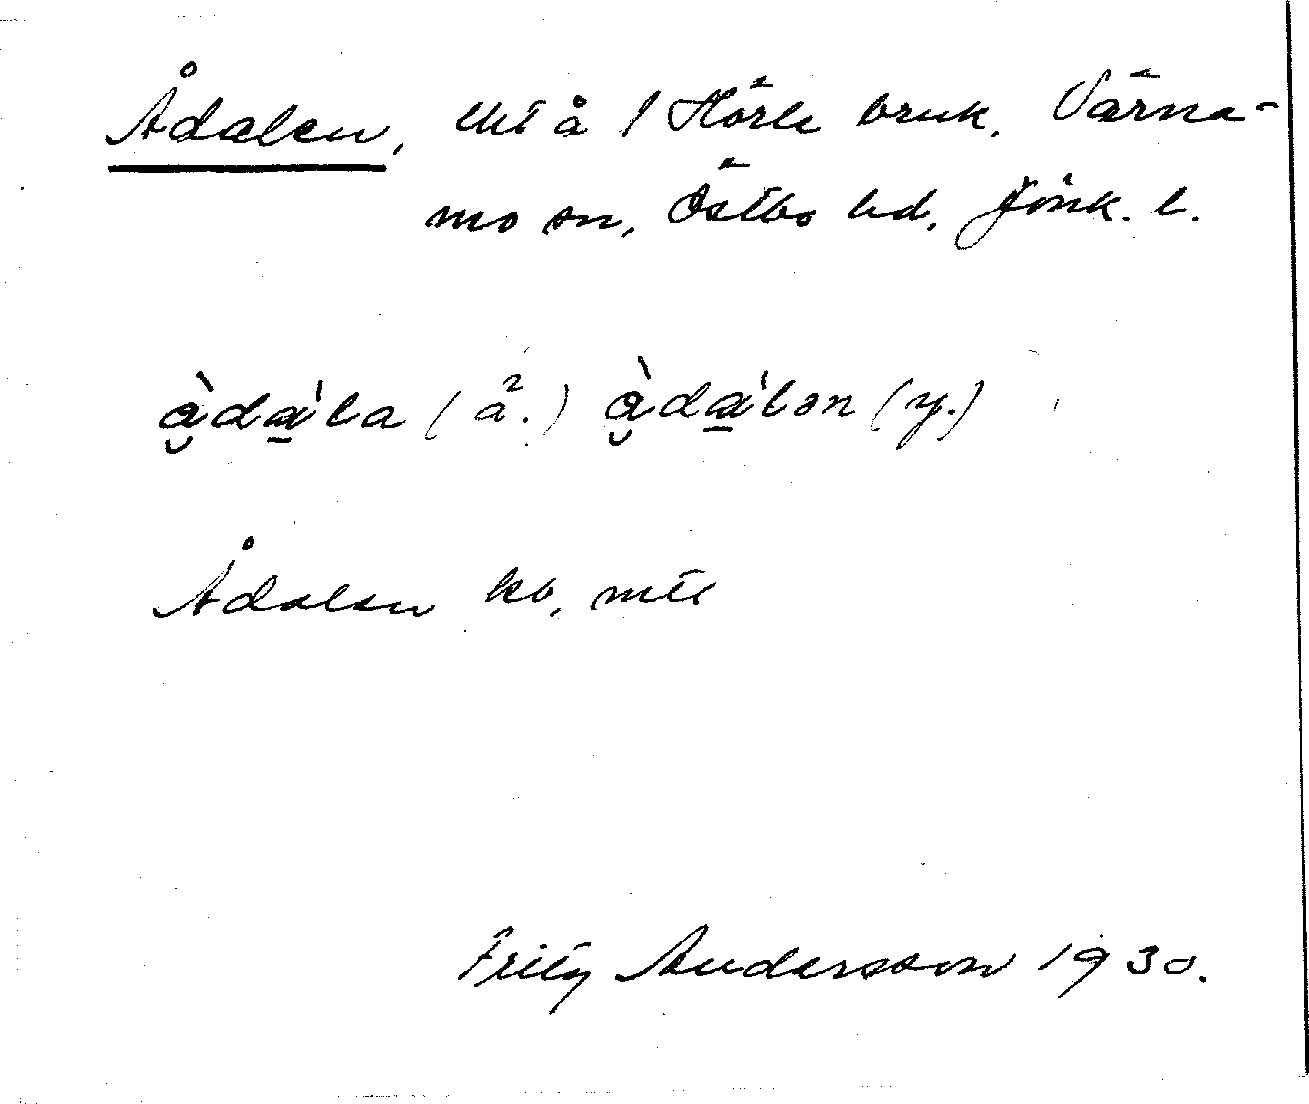 Ådalen, lht å 1 Hörle bruk. Värna-
mo sn, Östbo hd, Jönk. l.
å̀daˈla (ä.) å̀daˈlən (y.)
Ådalen kb, mtl
Fritz Andersson 1930.